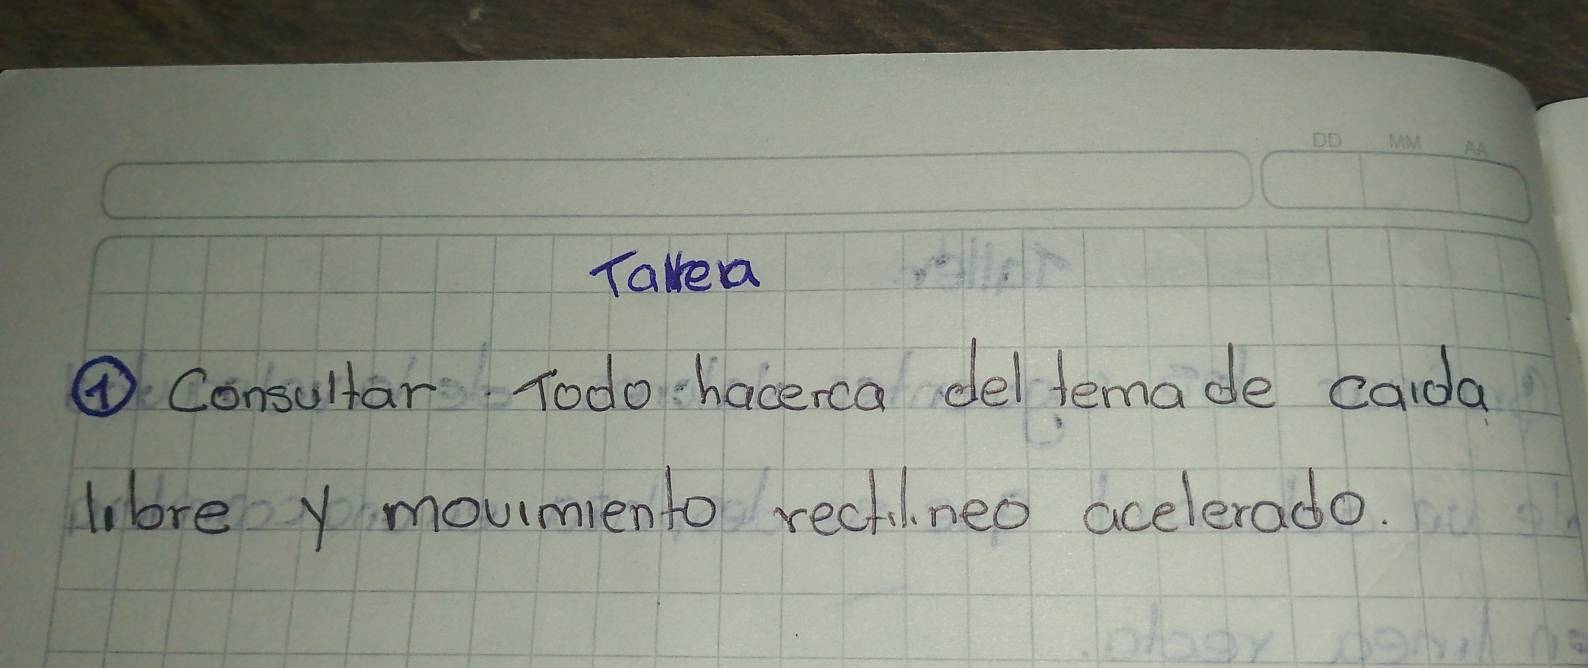 DD MM AA
Tarea
① Consultar Todo hacerca del tema de caida
libre y movimiento rectilineo acelerado.